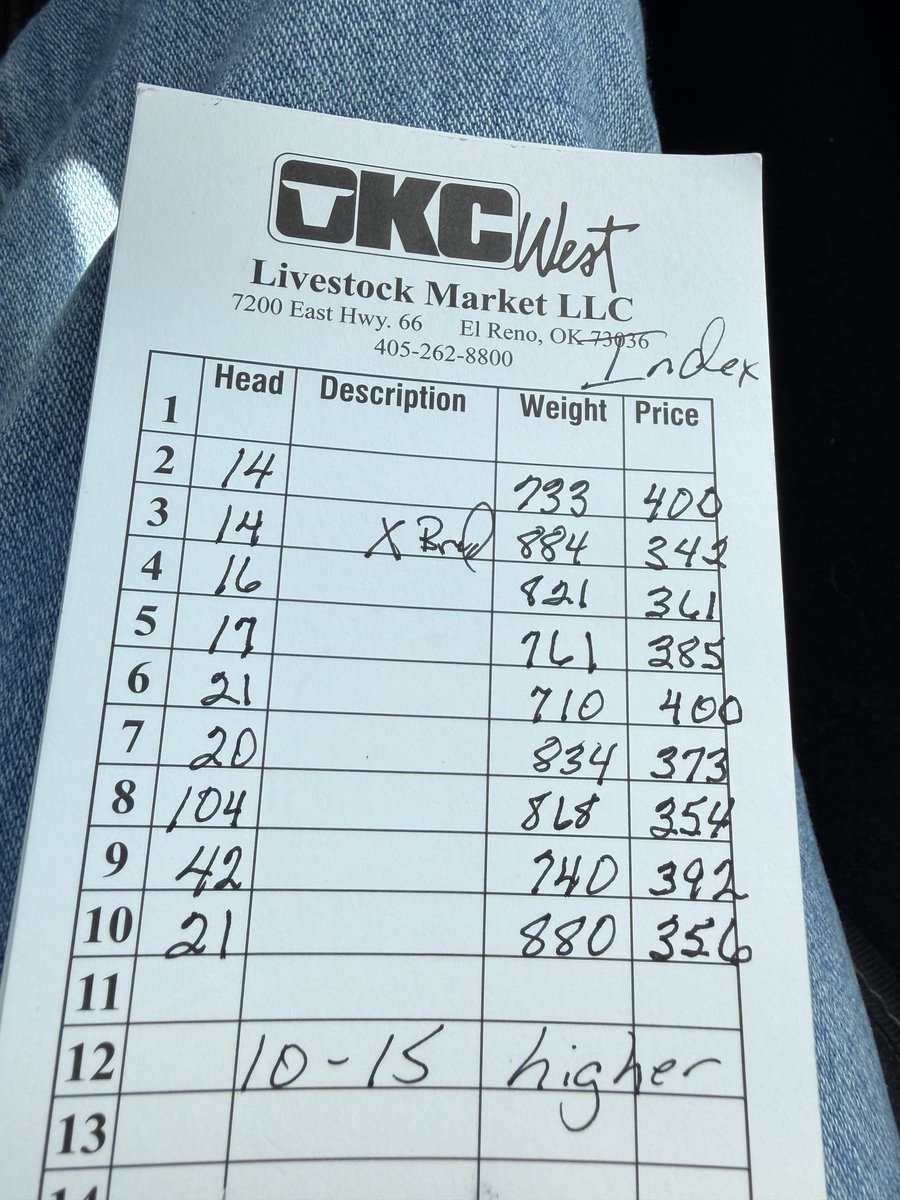 OKC West
Livestock Market LLC
7200 East Hwy. 66 El Reno, OK 73036
405-262-8800
Index
Head Description Weight Price
1
2 14 733 400
3 14 X Bred 884 342
4 16 821 361
5 17 761 385
6 21 710 400
7 20 834 373
8 104 868 354
9 42 740 392
10 21 880 356
11
12 10-15 higher
13